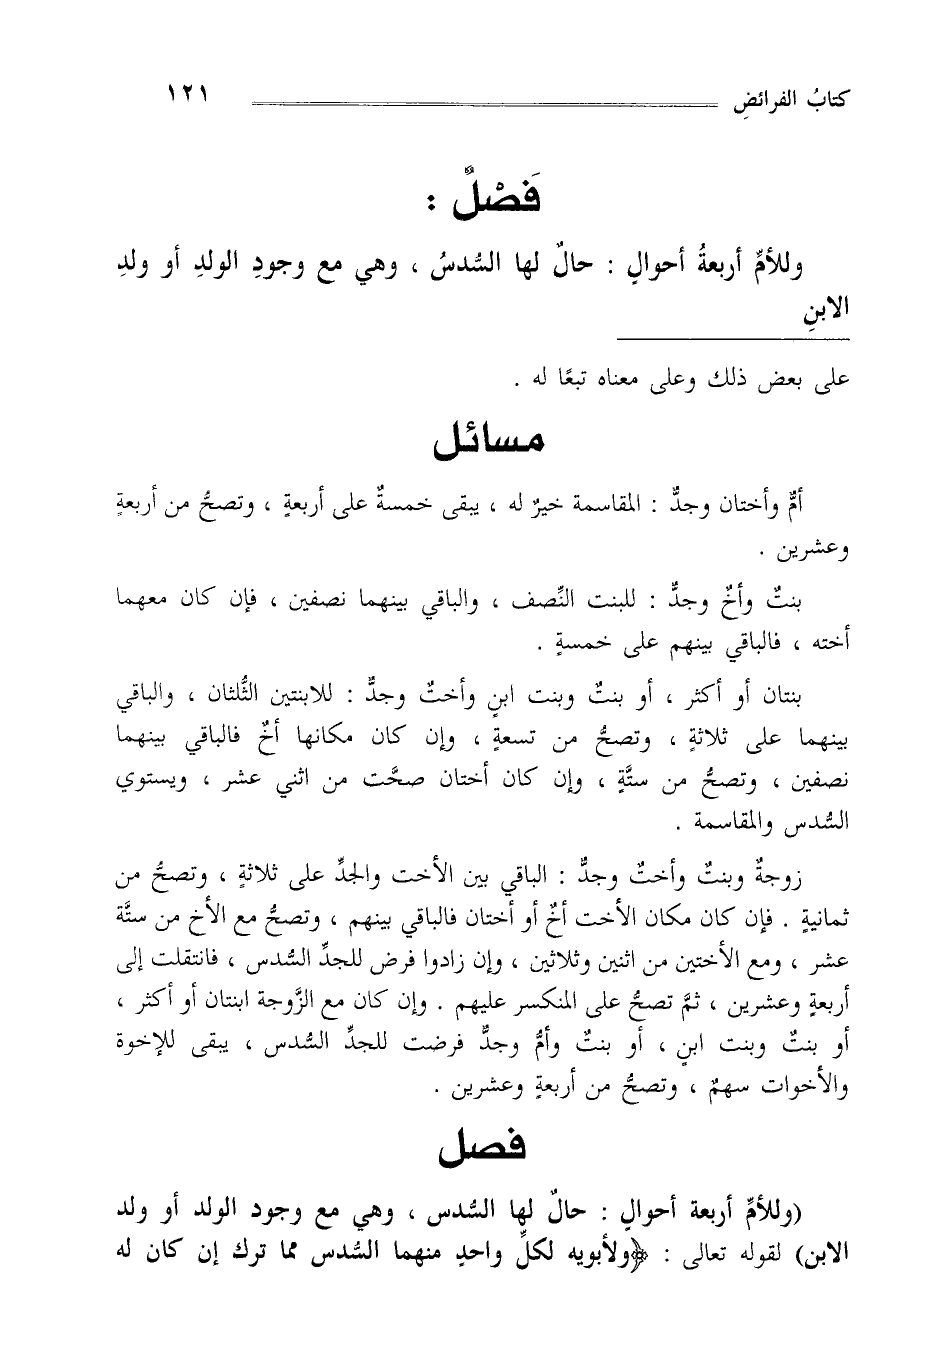 كتابُ الفرائضِ ١٢١
فَصْلٌ :
وللأمِّ أربعةُ أحوالٍ : حالٌ لها السُّدسُ ، وهي مع وجودِ الولدِ أو ولدِ
الابنِ
على بعض ذلك وعلى معناه تبعًا له .
مسائل
أمٌّ وأختان وجدٌّ : المقاسمة خيرٌ له ، يبقى خمسةٌ على أربعةٍ ، وتصحُّ من أربعةٍ
وعشرين .
بنتٌ وأخٌ وجدٌّ : للبنت النِّصف ، والباقي بينهما نصفين ، فإن كان معهما
أخته ، فالباقي بينهم على خمسةٍ .
بنتان أو أكثر ، أو بنتٌ وبنت ابنٍ وأختٌ وجدٌّ : للابنتين الثُّلثان ، والباقي
بينهما على ثلاثةٍ ، وتصحُّ من تسعةٍ ، وإن كان مكانها أخٌ فالباقي بينهما
نصفين ، وتصحُّ من ستَّةٍ ، وإن كان أختان صحَّت من اثني عشر ، ويستوي
السُّدس والمقاسمة .
زوجةٌ وبنتٌ وأختٌ وجدٌّ : الباقي بين الأخت والجدِّ على ثلاثةٍ ، وتصحُّ من
ثمانيةٍ . فإن كان مكان الأخت أخٌ أو أختان فالباقي بينهم ، وتصحُّ مع الأخ من ستَّة
عشر ، ومع الأختين من اثنين وثلاثين ، وإن زادوا فرض للجدِّ السُّدس ، فانتقلت إلى
أربعةٍ وعشرين ، ثمَّ تصحُّ على المنكسر عليهم . وإن كان مع الزَّوجة ابنتان أو أكثر ،
أو بنتٌ وبنت ابنٍ ، أو بنتٌ وأمٌّ وجدٌّ فرضت للجدِّ السُّدس ، يبقى للإخوة
والأخوات سهمٌ ، وتصحُّ من أربعةٍ وعشرين .
فصل
(وللأمِّ أربعة أحوالٍ : حالٌ لها السُّدس ، وهي مع وجود الولد أو ولد
الابن) لقوله تعالى : ﴿ولأبويه لكلِّ واحدٍ منهما السُّدس مما ترك إن كان له